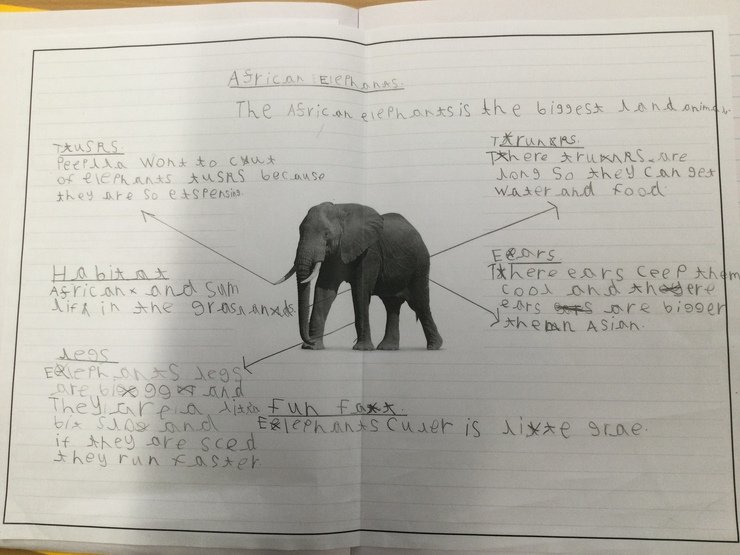 African Elephants.
The African elephants is the biggest land animal.
Tusks.
Peeplla wont to cut
of elephants tusks because
they are so etspensing.
Trunks.
There trunks are
long so they can get
water and food.
Habitat
African and Sum
lifs in the grasland.
Eears
There ears ceep them
cool and there
ears are bigger
then Asian.
legs
Elephants legs
are bigg and
They are a little
bit slow and
if they are sced
they run faster
Fun fact.
Elephants Culer is litte grae.